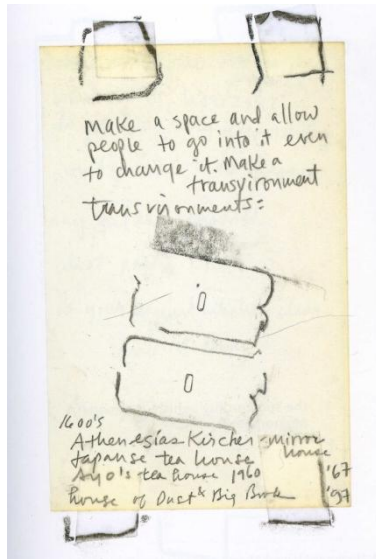 make a space and allow
people to go into it even
to change it. Make a
transvironment
transvironments:
0
0
1600's
Athenesias Kircher mirror
house
Japanse tea house
Ayo's tea house 1960
'67
house of Dust & Big Book
'97